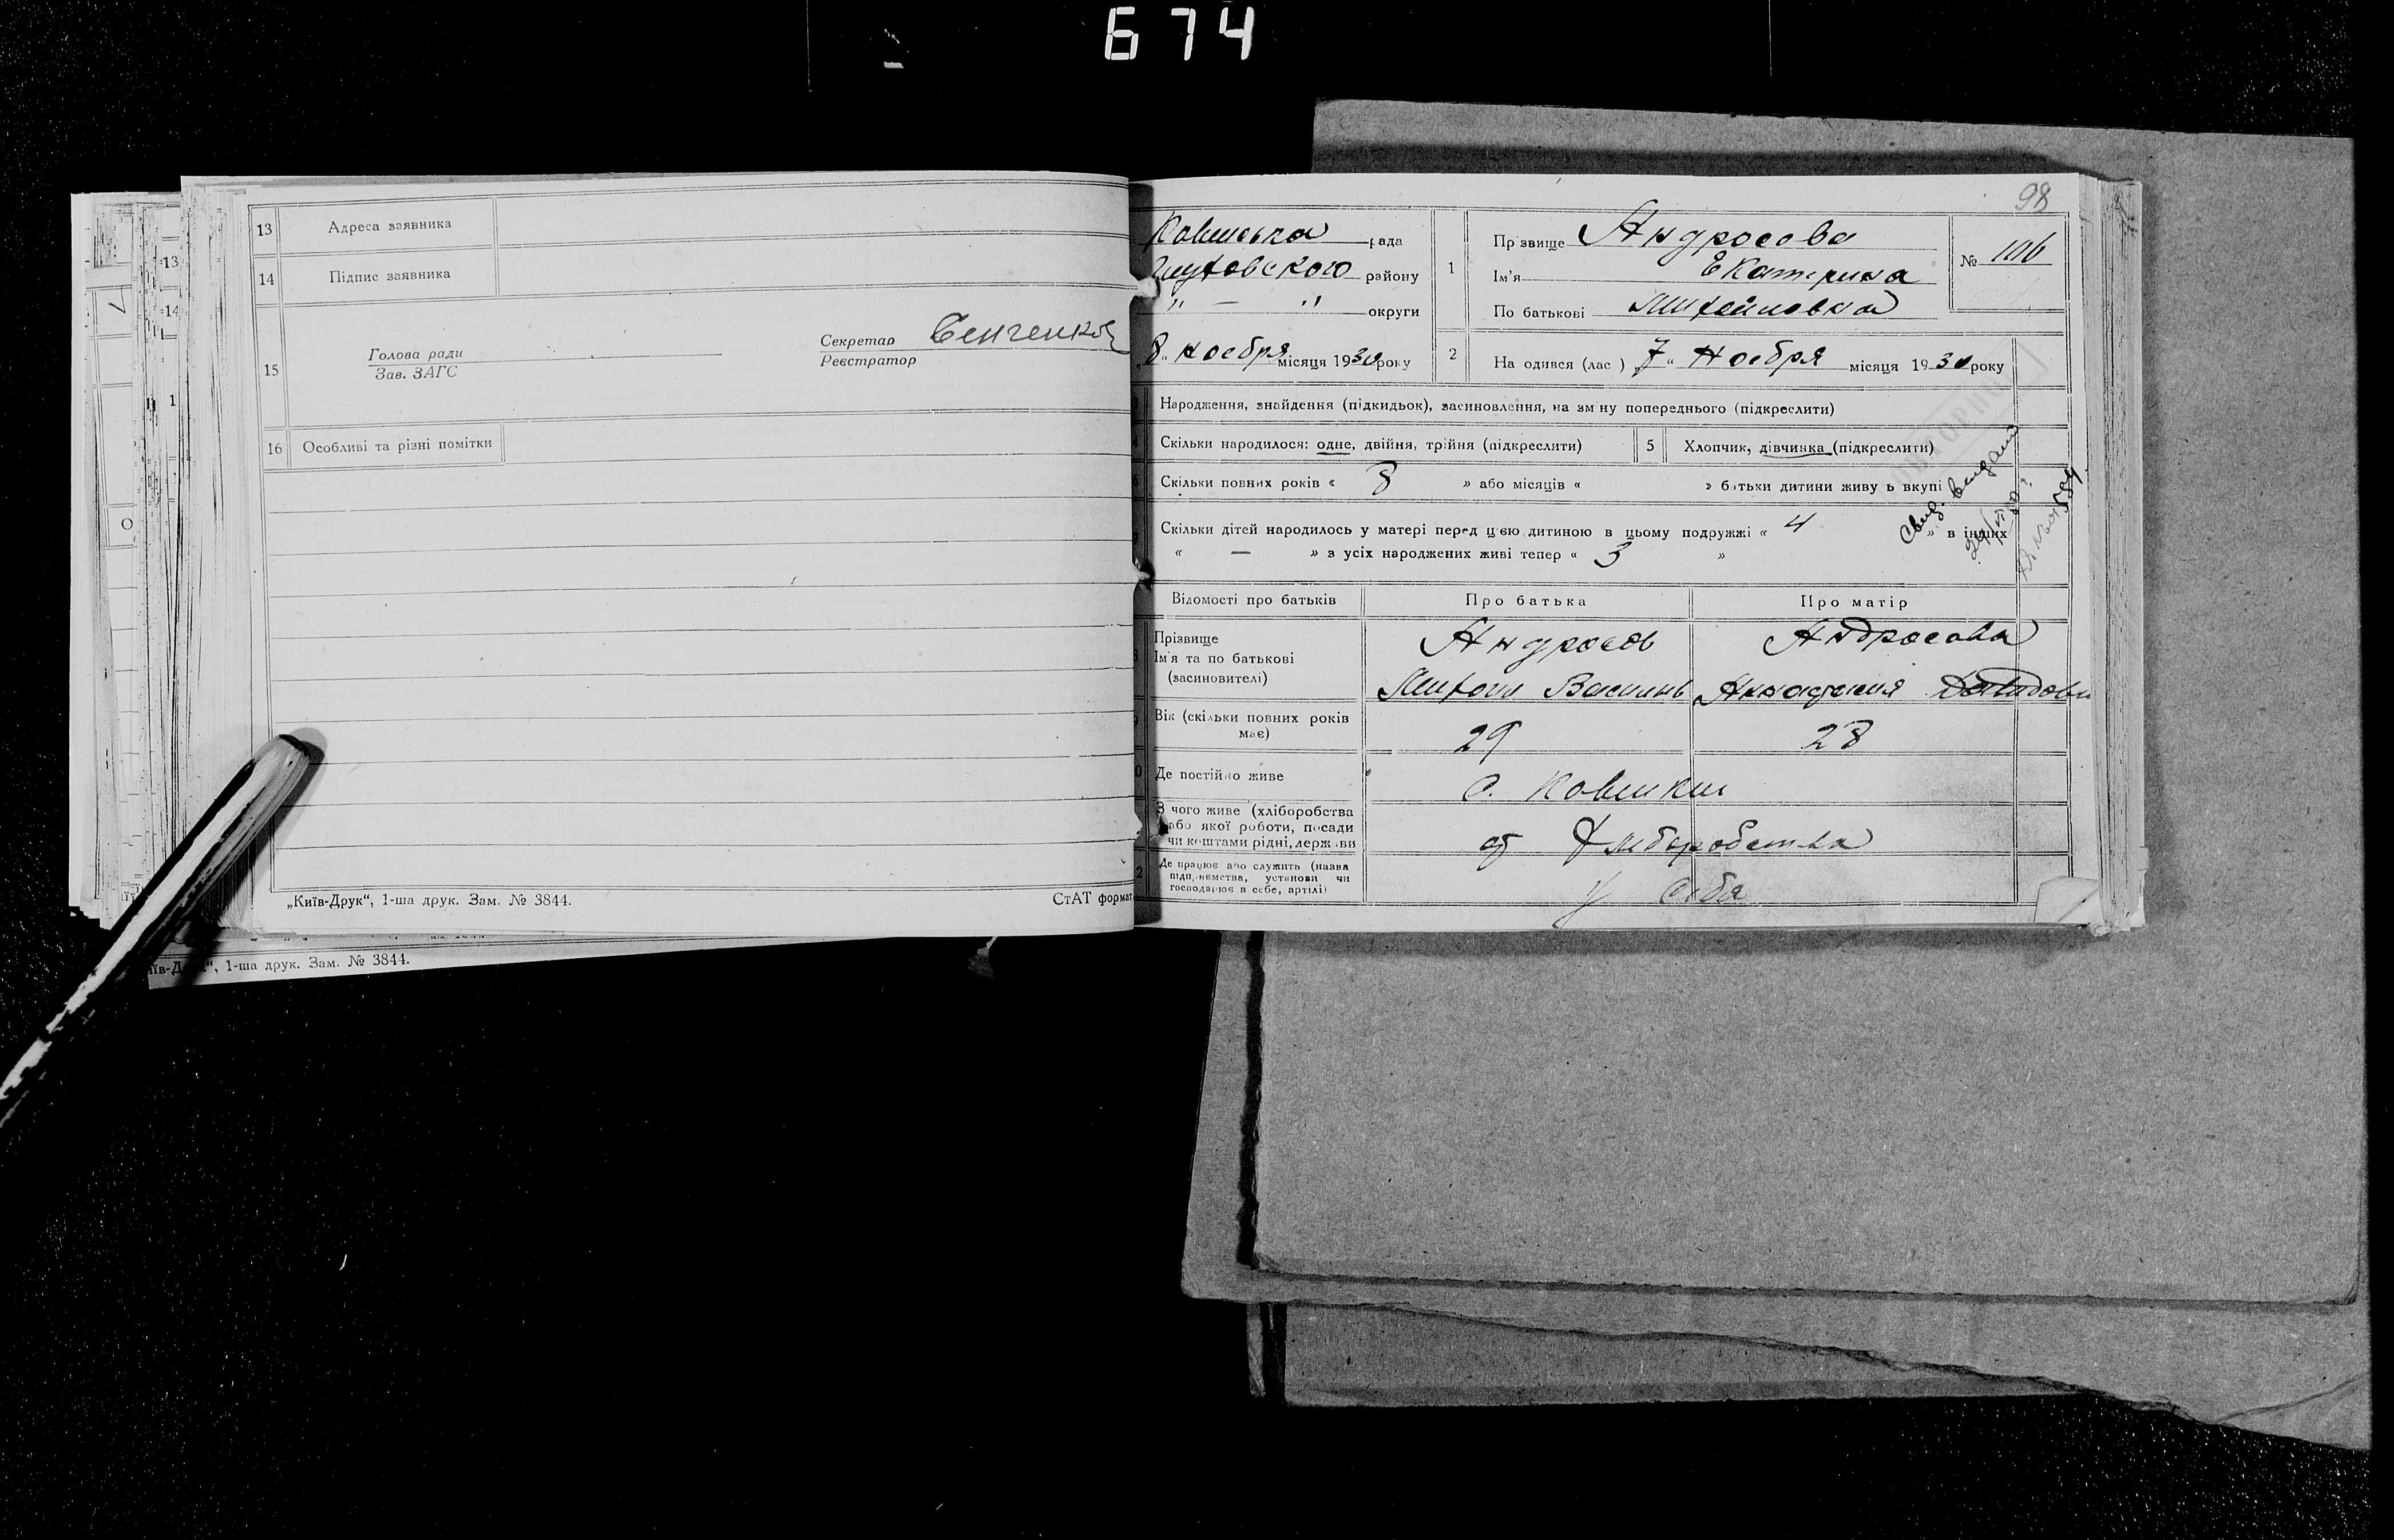 674
13 Адреса заявника
14 Підпис заявника
15 Голова ради
Зав. ЗАГС
Секретар Сенченко
Реєстратор
16 Особливі та різні помітки
„Київ-Друк“, 1-ша друк. Зам. № 3844.
СтАТ формат
1-ша друк. Зам. № 3844.
98
рада
Глуховского району
" — " округи
8 ноебря місяця 1930 року
1 Прізвище Андросова
Ім'я Екатерина
По батькові Михайловна
№ 106
2 На одився (лас ) „7“ Ноебря місяця 1930 року
Народження, знайдення (підкидьок), засиновлення, на зм ну попереднього (підкреслити)
Скільки народилося: одне, двійня, трійня (підкреслити)
5 Хлопчик, дівчинка (підкреслити)
Скільки повних років « 8 » або місяців « » батьки дитини живу ь вкупі
Скільки дітей народилось у матері перед цією дитиною в цьому подружжі « 4 » в інших
« — » з усіх народжених живі тепер « 3 »
Свид. выдано
Відомості про батьків Про батька Про матір
Прізвище Андросов Андросова
Ім'я та по батькові
(засиновителі) Михаил Василь Анастасия Давидовн
Вік (скільки повних років має) 29 28
Де постійно живе с. Ковинки
З чого живе (хліборобства
або якої роботи, посади
чи коштами рідні, держави от Хлеборобства
Де працює або служить (назва
підприємства, установи чи
господарює в себе, артілі) у себя